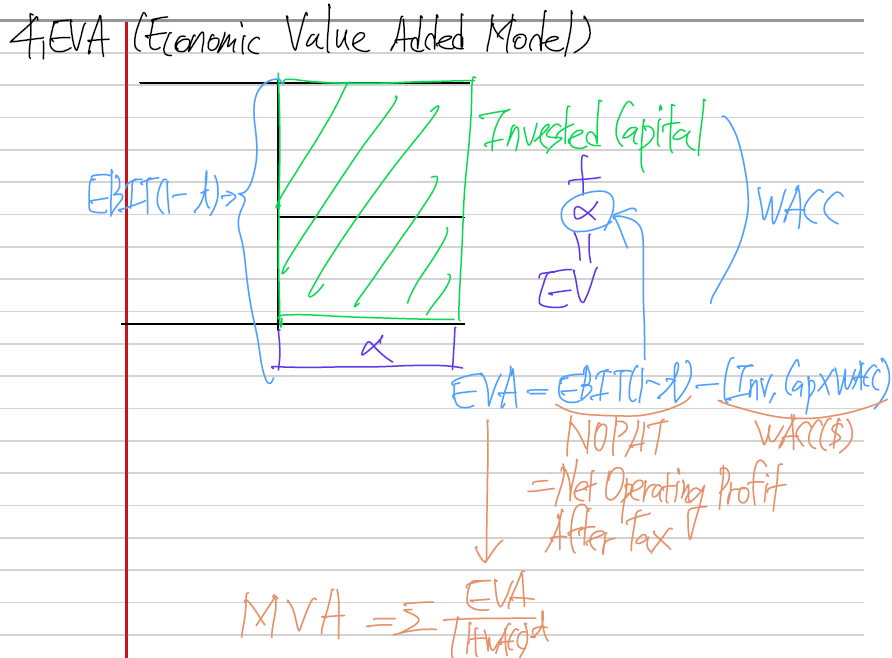 4, EVA (Economic Value Added Model)
Invested Capital
+
EBIT(1-t)→
α
WACC
=
EV
α
EVA = EBIT(1-t) - (Inv, Cap×WACC)
NOPAT WACC($)
= Net Operating Profit
After Tax
MVA = Σ EVA
(1+WACC)^t